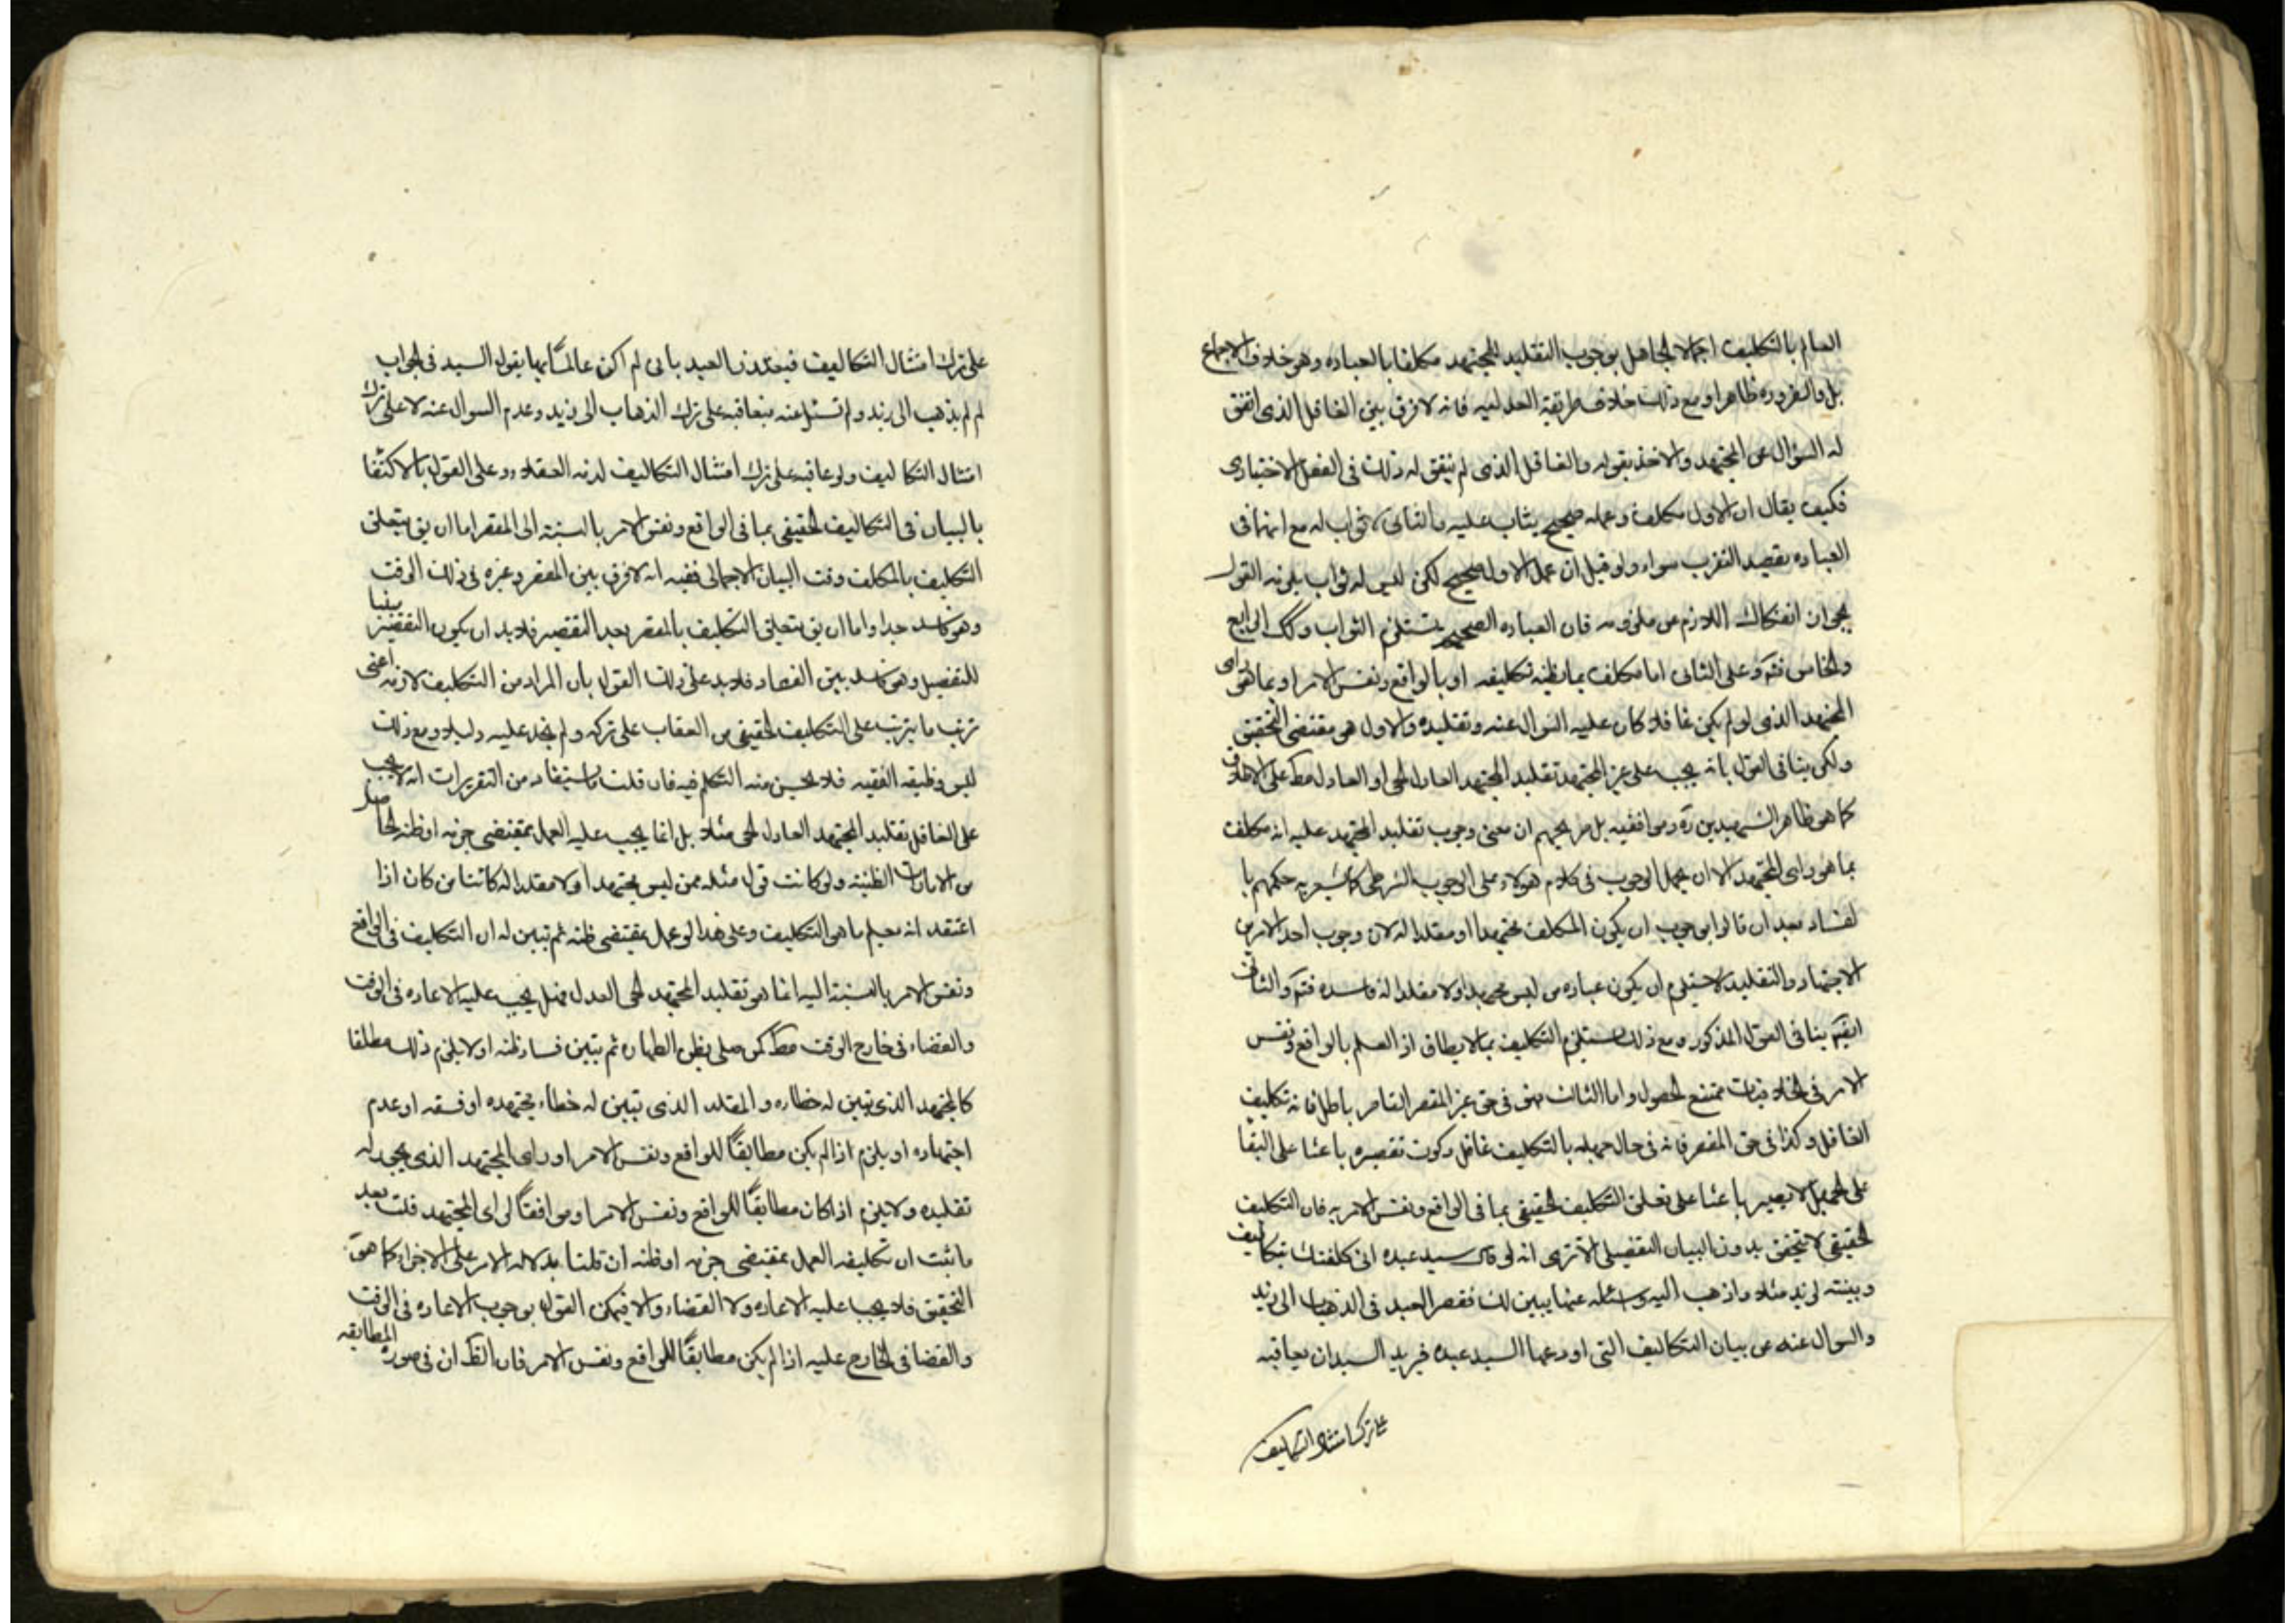 العالم بالتكليف اجمالا الجاهل بوجوب التقليد للمجتهد مكلفا بالعباده وهو خلاف الاجماع
بل والضروره ظاهرا ومع ذلك خلاف طريقة العدليه فانه لا فرق بين الغافل الذى اتفق
له السؤال عن المجتهد والاخذ بقوله والغافل الذى لم يتفق له ذلك فى الفعل الاختيارى
فكيف يقال ان الاول مكلف وعمله صحيح يثاب عليه والثانى لا ثواب له مع انهما فى
العباده بقصد التقرب سواء ولو قيل ان عمل الاول صحيح لكن ليس له ثواب يلزمه القول
بجواز انفكاك اللازم عن ملزومه فان العباده الصحيحه تستلزم الثواب وكك الرابع
والخامس فتم وعلى الثانى اما مكلف بما يظنه تكليفه او بالواقع ونفس الامر او بما هو راى
المجتهد الذى لو لم يكن غافلا كان عليه السوال عنه وتقليده والاول هو مقتضى التحقيق
ولكن ينافى القول بانه يجب على غير المجتهد تقليد المجتهد العادل الحى او العادل مط على الاختلاف
كما هو ظاهر الشهيدين ره وموافقيه بل صريحهم ان معنى وجوب تقليد المجتهد عليه انه مكلف
بما هو راى المجتهد الا ان يحمل الوجوب فى كلام هولاء على الوجوب الشرطى كما يشعر به حكمهم با
لفساد بعد ان قالوا بوجوب ان يكون المكلف مجتهدا او مقلدا له لان وجوب احد الامرين
الاجتهاد والتقليد لا يستلزم ان يكون عباده من ليس مجتهدا ولا مقلدا له فاسده فتم والثانى
ايضا ينافى القول المذكور ومع ذلك يستلزم التكليف بما لا يطاق اذ العلم بالواقع ونفس
الامر فى الخلافيات ممتنع الحصول واما الثالث فهو فى حق غير المقصر القاصر باطل فانه تكليف
الغافل وكذا فى حق المقصر فانه فى حال جهله بالتكليف غافل وكون تقصيره باعثا على البقا
على الجهل لا يصير باعثا على تعلق التكليف الحقيقى بما فى الواقع ونفس الامر به فان التكليف
الحقيقى لا يتحقق بدون البيان التفصيلى الا ترى انه لو قال سيد عبده انى كلفتك بتكاليف
وبينته لزيد مثلا واذهب اليه وسئله عنها يبين لك فقصر العبد فى الذهاب الى زيد
والسوال عنه عن بيان التكاليف التى اودعها السيد عبده فيريد السيد ان يعاقبه
على ترك امتثال التكاليف
على ترك امتثال التكاليف فيعتذر العبد بانى لم اكن عالما بها يقول السيد فى الجواب
لم لم يذهب الى زيد ولم تسئل عنه فيعاقبه على ترك الذهاب الى زيد وعدم السوال عنه لا على ترك
امتثال التكاليف ولو عاقبه على ترك امتثال التكاليف لذمه العقلاء وعلى القول بالاكتفا
بالبيان فى التكاليف الحقيقى بما فى الواقع ونفس الامر بالنسبة الى المقصر اما ان يق يتعلق
التكليف بالمكلف وقت البيان الاجمالى ففيه انه لا فرق بين المقصر وغيره فى ذلك الوقت
وهو فاسد جدا واما ان يق يتعلق التكليف بالمقصر بعد التقصير فلابد ان يكون التقصير مبنيا
للتفصيل وهو فاسد بين الفساد فلابد على ذلك القول بان المراد من التكليف لازمه اعنى
ترتب ما يترتب على التكليف الحقيقى من العقاب على تركه ولم نجد عليه دليلا ومع ذلك
ليس وظيفه الفقيه فلا يحسن منه التكلم فيه فان قلت ما يستفاد من التقريرات انه لا يجب
على الغافل تقليد المجتهد العادل الحى مثلا بل انما يجب عليه العمل بمقتضى جزمه او ظنه الحاصل
من الامارات الظنية ولو كانت قول مثله ممن ليس مجتهدا ولا مقلدا له كائنا من كان اذا
اعتقد انه يعلم ما هو التكليف وعلى هذا لو عمل بمقتضى ظنه ثم تبين له ان التكليف فى الواقع
ونفس الامر بالنسبة اليه انما هو تقليد المجتهد الحى العدل فهل يجب عليه الاعاده فى الوقت
والقضاء فى خارج الوقت مط كمن صلى بظن الطهاره ثم تبين فساد ظنه او لا يلزم ذلك مطلقا
كالمجتهد الذى تبين له خطاءه والمقلد الذى تبين له خطاء مجتهده او فسقه او عدم
اجتهاده او يلزم اذا لم يكن مطابقا للواقع ونفس الامر او راى المجتهد الذى يجوز له
تقليده ولا يلزم اذا كان مطابقا للواقع ونفس الامر او موافقا لراى المجتهد قلت بعد
ما ثبت ان تكليفه العمل بمقتضى جزمه او ظنه ان قلنا بدلاله الامر على الاجزاء كما هو
التحقيق فلا يجب عليه الاعاده ولا القضاء والا فيمكن القول بوجوب الاعاده فى الوقت
والقضا فى الخارج عليه اذا لم يكن مطابقا للواقع ونفس الامر فان الظ ان فى صوره المطابقه